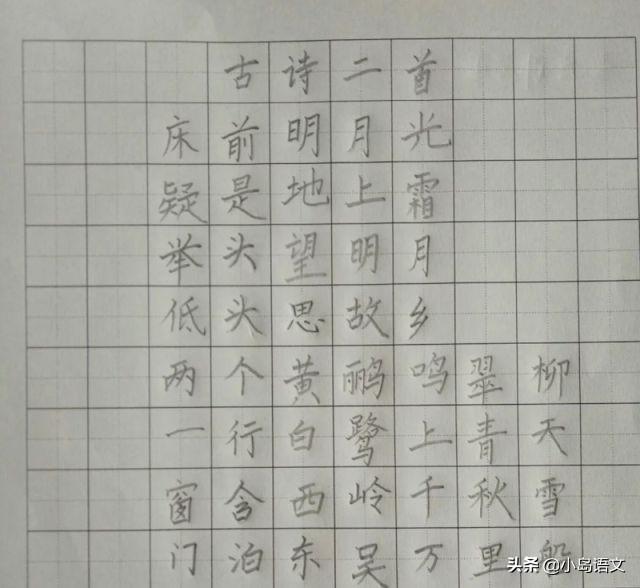 古诗二首
床前明月光
疑是地上霜
举头望明月
低头思故乡
两个黄鹂鸣翠柳
一行白鹭上青天
窗含西岭千秋雪
门泊东吴万里船
头条 @小鸟语文